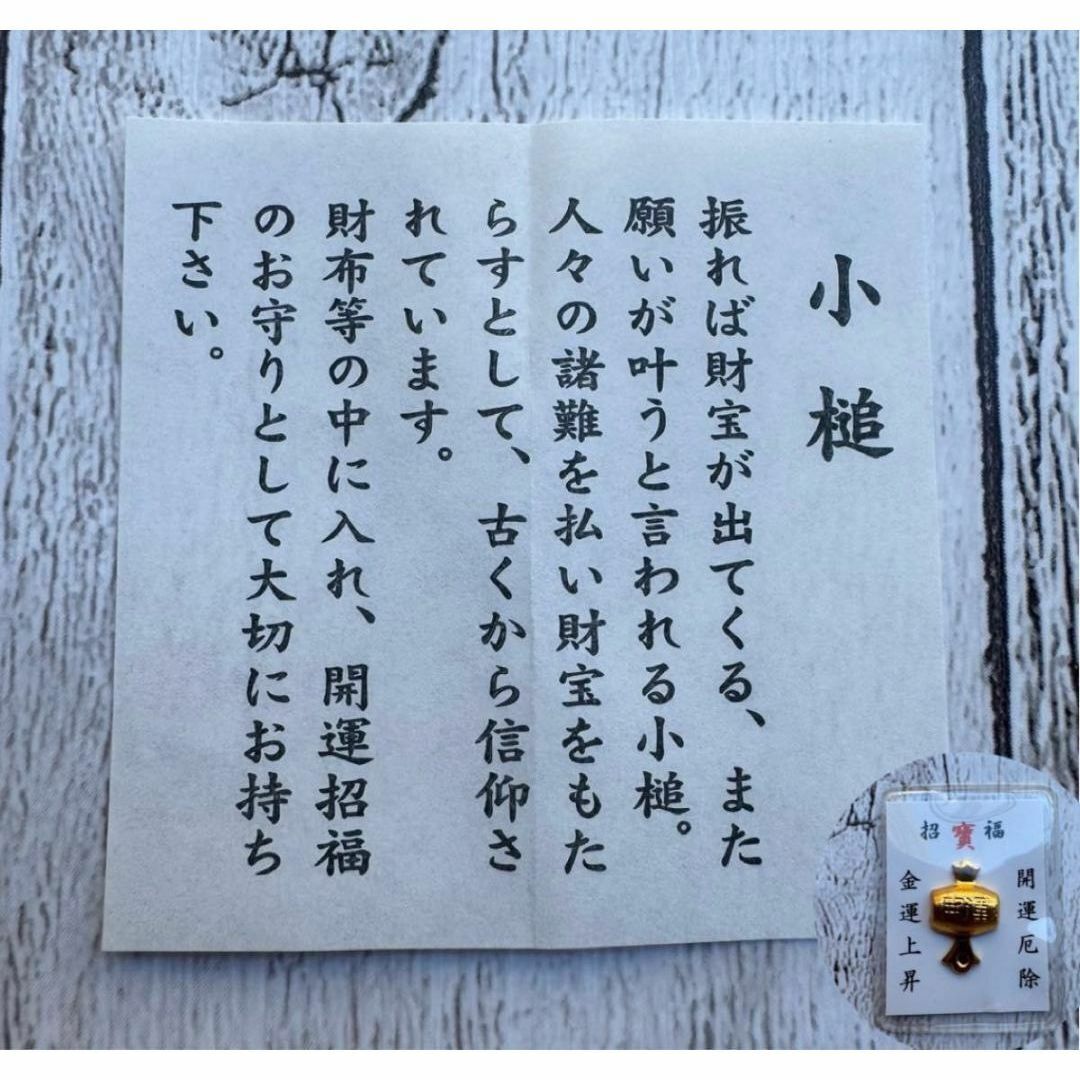 小槌
振れば財宝が出てくる、また
願いが叶うと言われる小槌。
人々の諸難を払い財宝をもた
らすとして、古くから信仰さ
れています。
財布等の中に入れ、開運招福
のお守りとして大切にお持ち
下さい。
招寶福
開運厄除
金運上昇